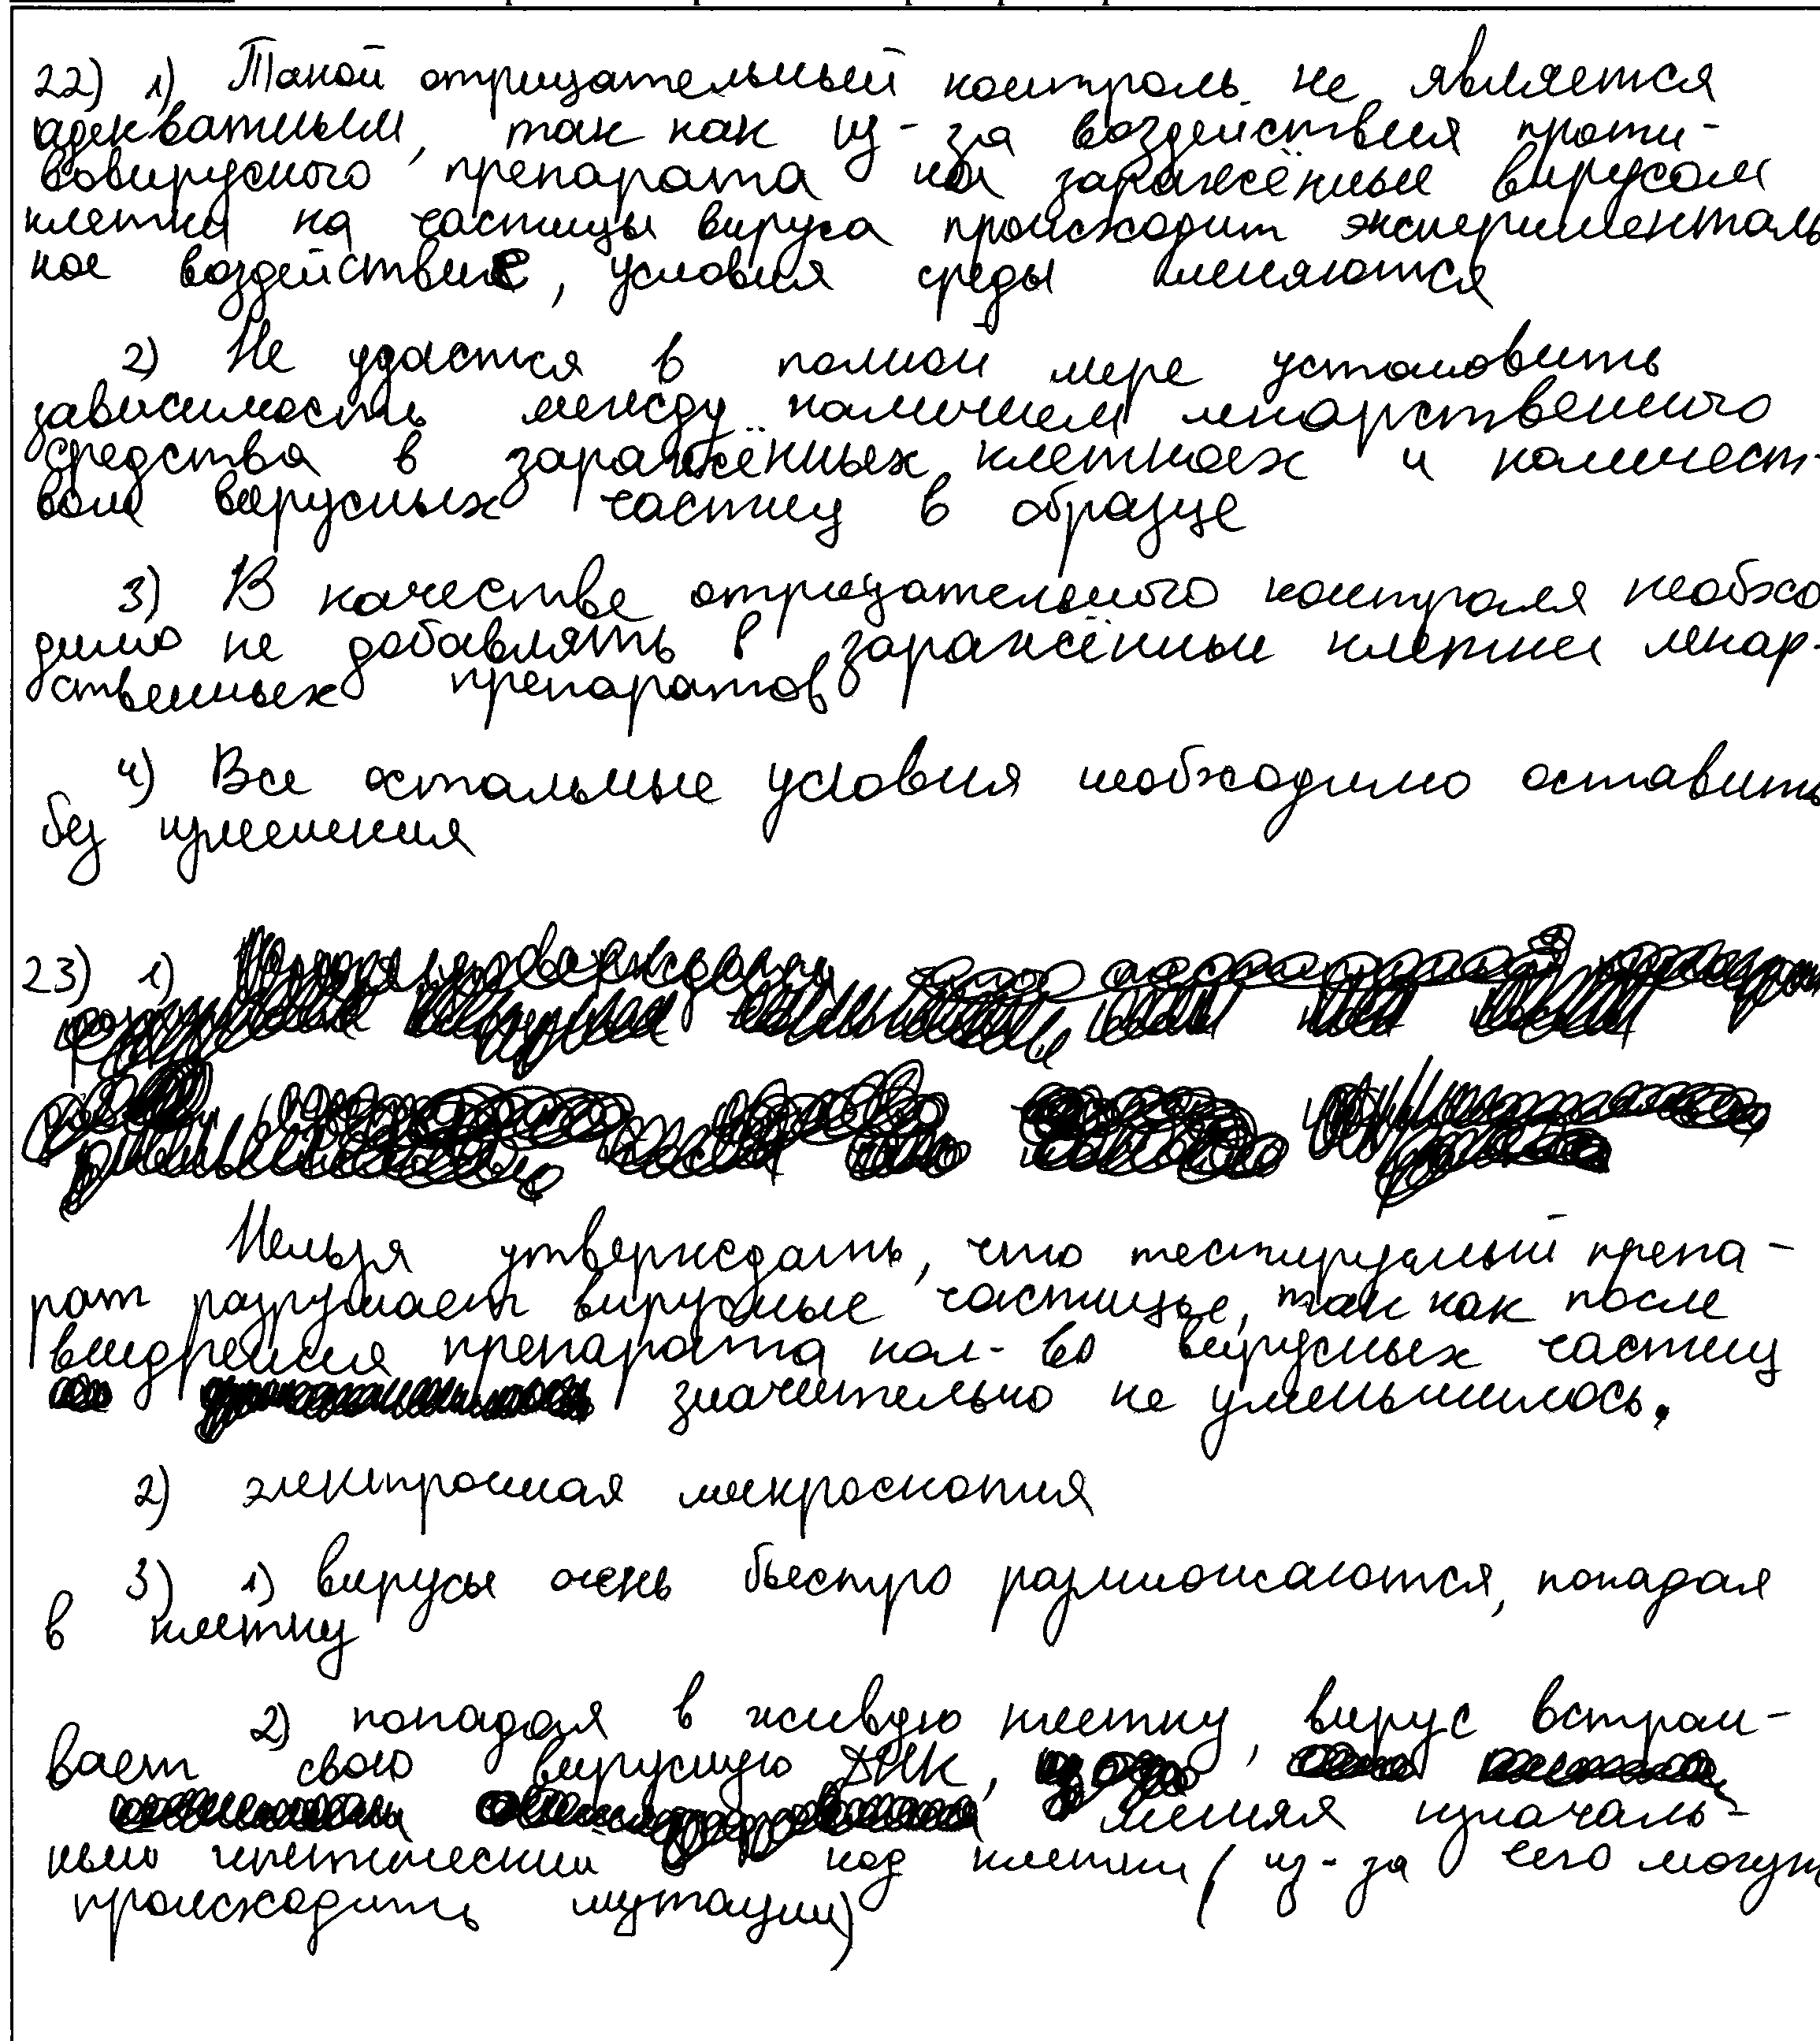 22) 1) Такой отрицательный контроль не является
адекватным, так как из-за воздействия проти-
вовирусного препарата на заражённые вирусом
клетки на частицы вируса происходит эксперименталь
ное воздействие, условия среды меняются
2) Не удастся в полной мере установить
зависимость между наличием лекарственного
средства в заражённых клетках и количест-
вом вирусных частиц в образце
3) В качестве отрицательного контроля необхо
димо не добавлять в заражённые клетки лекар-
ственных препаратов
4) Все остальные условия необходимо оставить
без изменения
23) 1)
Нельзя утверждать, что тестируемый препа-
рат разрушает вирусные частицы, так как после
внедрения препарата кол-во вирусных частиц
значительно не уменьшилось.
2) электронная микроскопия
3) 1) вирусы очень быстро размножаются, попадая
в клетку
2) попадая в живую клетку, вирус встраи-
вает свою вирусную ДНК,
меняя изначаль-
ный генетический код клетки (из-за чего могут
происходить мутации)